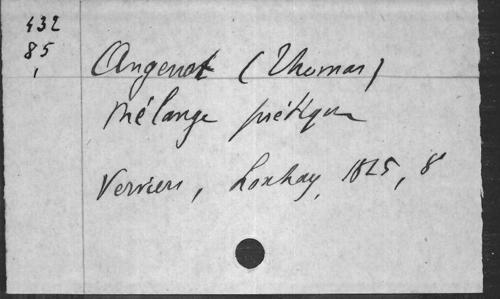 432
85
1
Angenot (Thomas)
Mélange poétique
Verviers, Loxhay, 1825, 8°